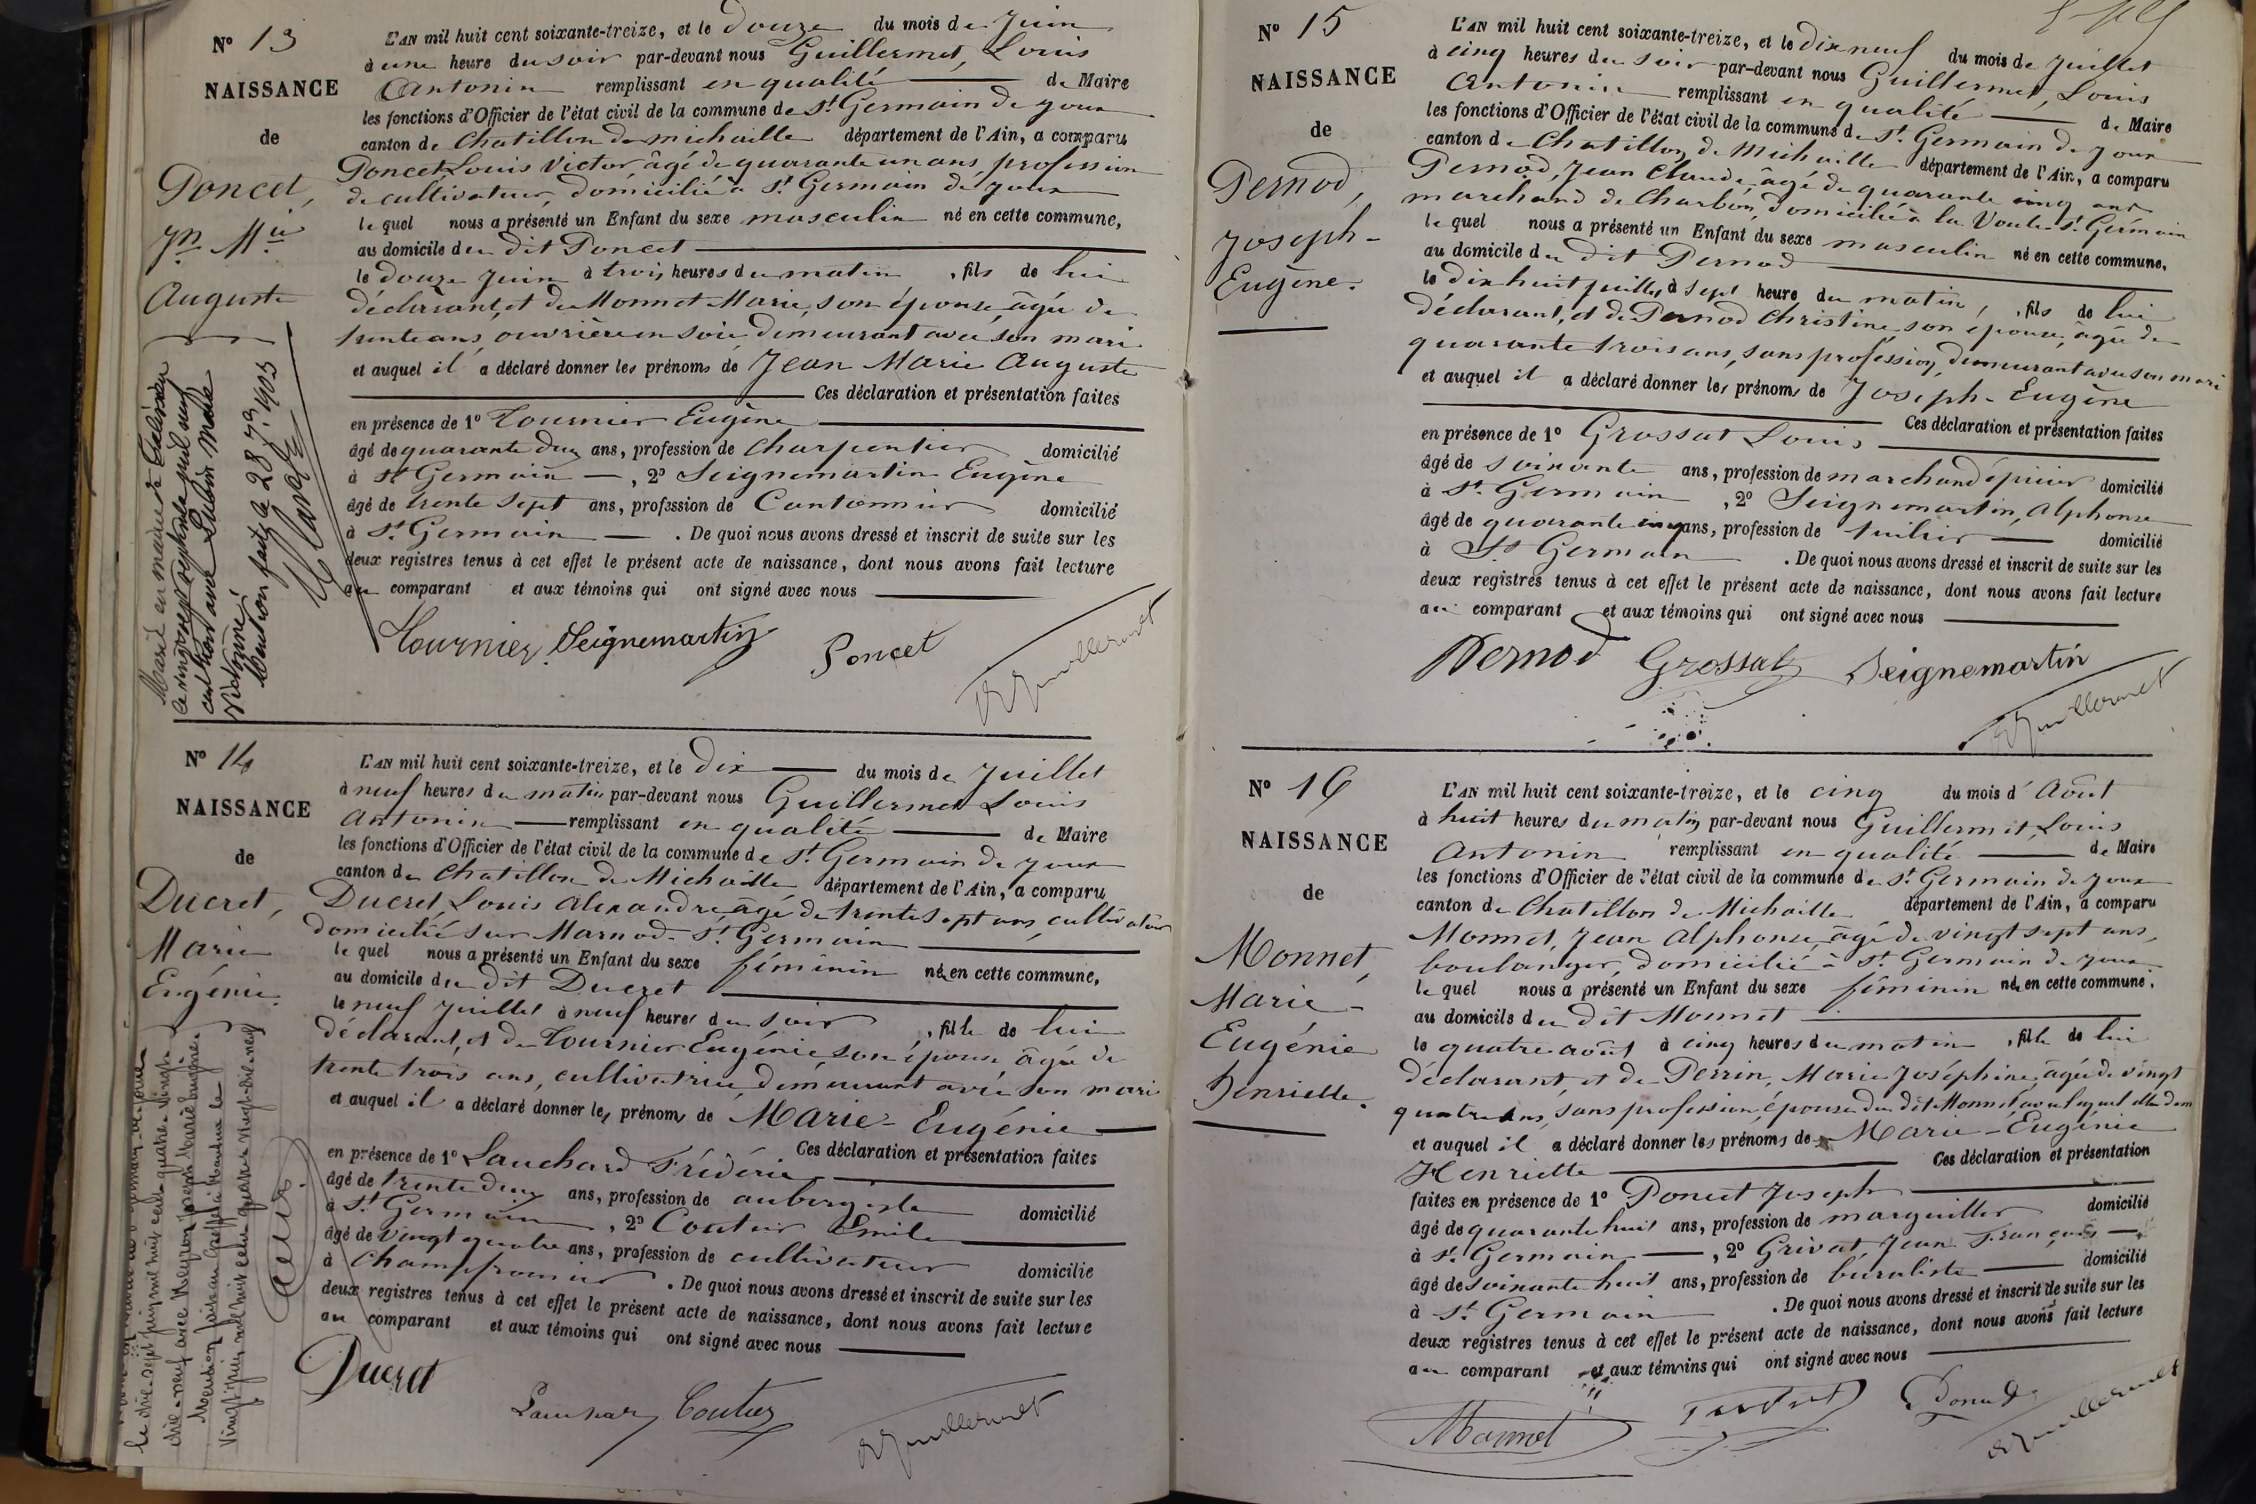 N° 13
NAISSANCE
de
Poncet,
Jn Mie
Auguste
L'AN mil huit cent soixante-treize, et le douze du mois de Juin
à une heure du soir par-devant nous Guillermet, Louis
Antonin remplissant en qualité de Maire
les fonctions d'Officier de l'état civil de la commune de St Germain de Joux
canton de Chatillon de michaille département de l'Ain, a comparu
Poncet Louis Victor âgé de quarante un ans profession
de cultivateur, domicilié à St Germain de Joux
le quel nous a présenté un Enfant du sexe masculin né en cette commune,
au domicile du dit Poncet
le douze Juin à trois heures du matin, fils de lui
déclarant, et de Monnet Marie, son épouse, âgée de
trente ans, ouvrière en soie, demeurant avec son mari
et auquel il a déclaré donner les prénoms de Jean Marie Auguste
Ces déclaration et présentation faites
en présence de 1° Tournier Eugène
âgé de quarante deux ans, profession de charpentier domicilié
à St Germain, 2° Seignemartin Eugène
âgé de trente sept ans, profession de Cantonnier domicilié
à St Germain. De quoi nous avons dressé et inscrit de suite sur les
deux registres tenus à cet effet le présent acte de naissance, dont nous avons fait lecture
au comparant et aux témoins qui ont signé avec nous
Tournier Seignemartin Poncet
Guillermet
Marié en mairie de
cent trois avec
Mention faite le 28 1903
N° 14
NAISSANCE
de
Ducret,
Marie
Eugénie.
L'AN mil huit cent soixante-treize, et le dix du mois de Juillet
à neuf heures du matin par-devant nous Guillermet Louis
Antonin remplissant en qualité de Maire
les fonctions d'Officier de l'état civil de la commune de St Germain de Joux
canton de Chatillon de Michaille département de l'Ain, a comparu
Ducret, Louis Alexandre âgé de trente sept ans, cultivateur
domicilié sur Marnod - St Germain
le quel nous a présenté un Enfant du sexe féminin née en cette commune,
au domicile du dit Ducret
le neuf Juillet à neuf heures du soir, fille de lui
déclarant, et de Tournier Eugénie son épouse âgée de
trente trois ans, cultivatrice demeurant avec son mari
et auquel il a déclaré donner les prénoms de Marie - Eugénie
Ces déclaration et présentation faites
en présence de 1° Lauchard Frédéric
âgé de trente deux ans, profession de aubergiste domicilié
à St Germain, 2° Coutier Emile
âgé de vingt quatre ans, profession de cultivateur domicilié
à Champfromier. De quoi nous avons dressé et inscrit de suite sur les
deux registres tenus à cet effet le présent acte de naissance, dont nous avons fait lecture
au comparant et aux témoins qui ont signé avec nous
Ducret
Coutier
Guillermet
le dix-sept juin mil huit cent quatre-vingt
dix-neuf avec
Mention faite au Greffe à Nantua le
vingt juin mil huit cent quatre-vingt-dix-neuf
N° 15
NAISSANCE
de
Pernod,
Joseph -
Eugène.
L'AN mil huit cent soixante-treize, et le dix neuf du mois de Juillet
à cinq heures du soir par-devant nous Guillermet, Louis
Antonin remplissant en qualité de Maire
les fonctions d'Officier de l'état civil de la commune de St Germain de Joux
canton de Chatillon de Michaille département de l'Ain, a comparu
Pernod, Jean Claude, âgé de quarante cinq ans
marchand de Charbon, domicilié à la Voute St Germain
le quel nous a présenté un Enfant du sexe masculin né en cette commune,
au domicile du dit Pernod
le dix huit juillet à sept heure du matin, fils de lui
déclarant, et de Pernod Christine, son épouse, âgée de
quarante trois ans, sans profession, demeurant avec son mari
et auquel il a déclaré donner les prénoms de Joseph - Eugène
Ces déclaration et présentation faites
en présence de 1° Grossat Louis
âgé de soixante ans, profession de marchand épicier domicilié
à St Germain, 2° Seignemartin, Alphonse
âgé de quarante cinq ans, profession de tuilier domicilié
à St Germain. De quoi nous avons dressé et inscrit de suite sur les
deux registres tenus à cet effet le présent acte de naissance, dont nous avons fait lecture
au comparant et aux témoins qui ont signé avec nous
Pernod Grossat Seignemartin
Guillermet
N° 16
NAISSANCE
de
Monnet,
Marie -
Eugénie
Henriette.
L'AN mil huit cent soixante-treize, et le cinq du mois d'Août
à huit heures du matin par-devant nous Guillermet, Louis
Antonin remplissant en qualité de Maire
les fonctions d'Officier de l'état civil de la commune de St Germain de Joux
canton de Chatillon de Michaille département de l'Ain, a comparu
Monnet, Jean Alphonse, âgé de vingt sept ans,
boulanger, domicilié à St Germain de Joux
le quel nous a présenté un Enfant du sexe féminin née en cette commune,
au domicile du dit Monnet
le quatre août à cinq heures du matin, fille de lui
déclarant et de Perrin, Marie Joséphine, âgée de vingt
quatre ans, sans profession, épouse du dit Monnet, avec lequel elle dem
et auquel il a déclaré donner les prénoms de Marie - Eugénie
Henriette Ces déclaration et présentation
faites en présence de 1° Poncet Joseph domicilié
âgé de quarante huit ans, profession de marguiller
à St Germain, 2° Grivat, Jean François
âgé de soixante huit ans, profession de buraliste domicilié
à St Germain. De quoi nous avons dressé et inscrit de suite sur les
deux registres tenus à cet effet le présent acte de naissance, dont nous avons fait lecture
au comparant et aux témoins qui ont signé avec nous
Monnet Poncet
Guillermet